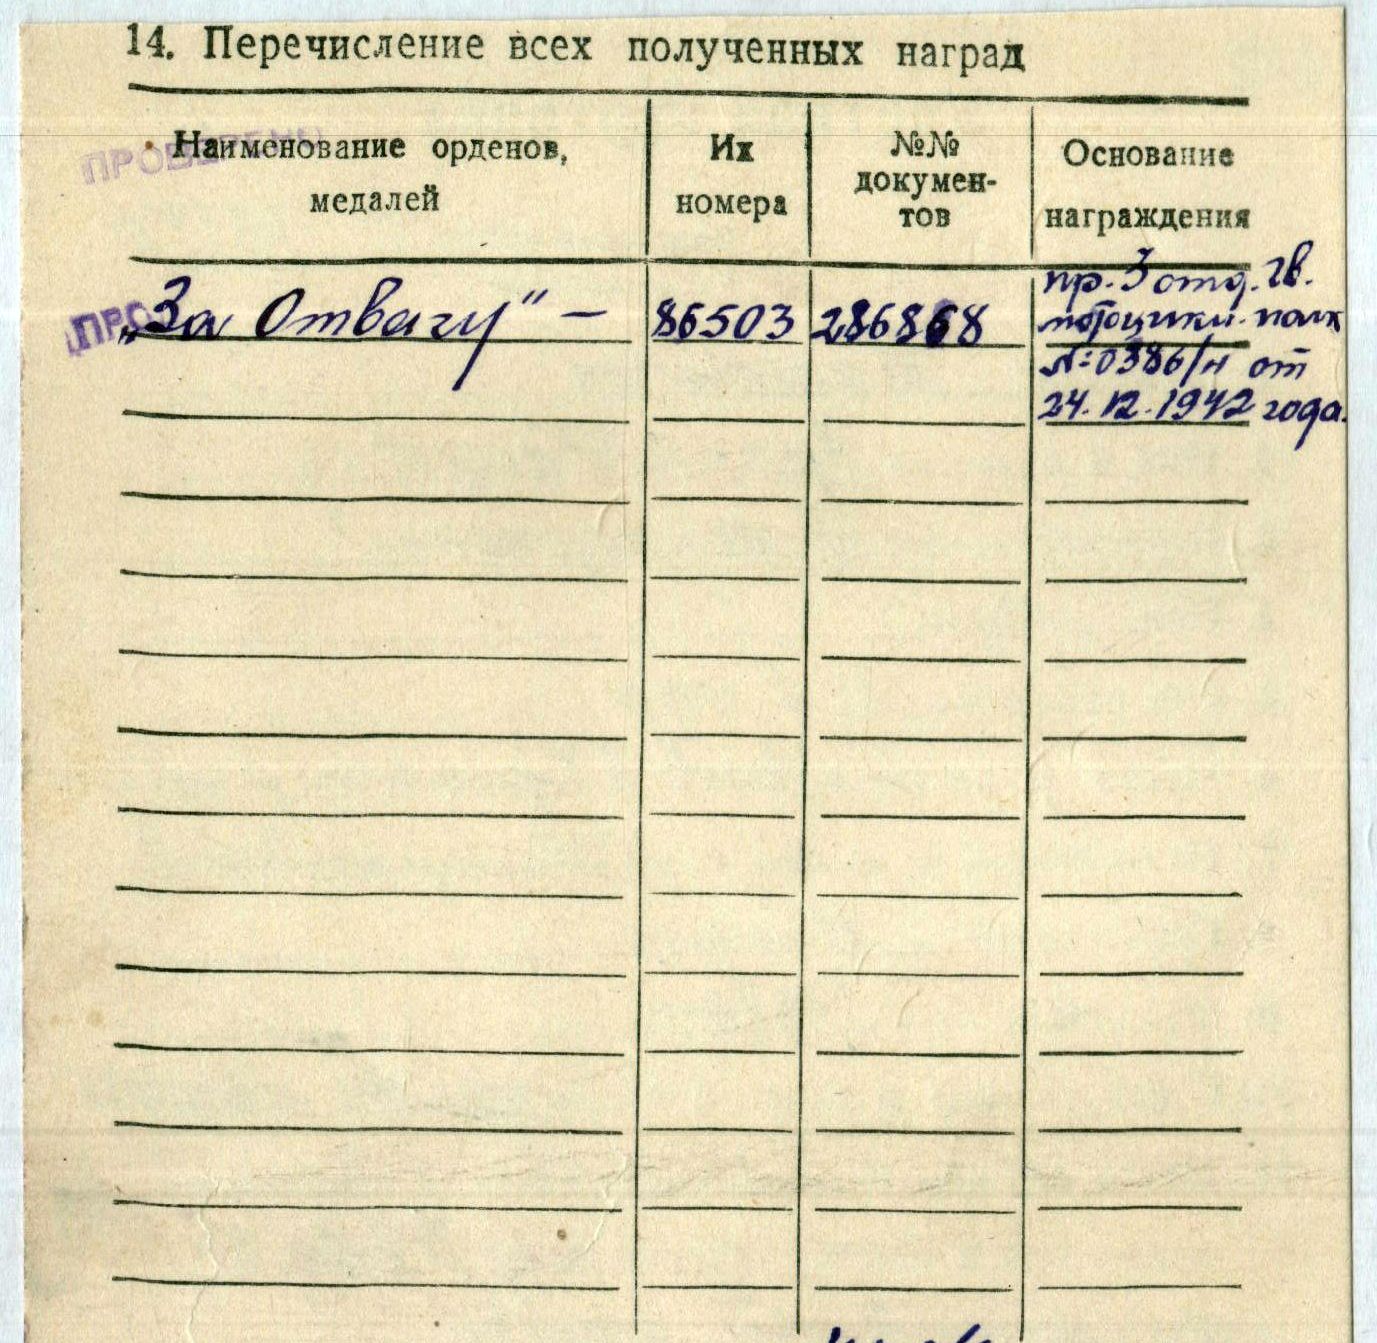 14. Перечисление всех полученных наград
ПРОВЕРЕНО
Наименование орденов,
медалей
Их
номера
№№
докумен-
тов
Основание
награждения
„За Отвагу“ —
86503
286868
пр. 3 отд. гв.
мотоцикл. полк
№ 0386/н от
24.12.1942 года.